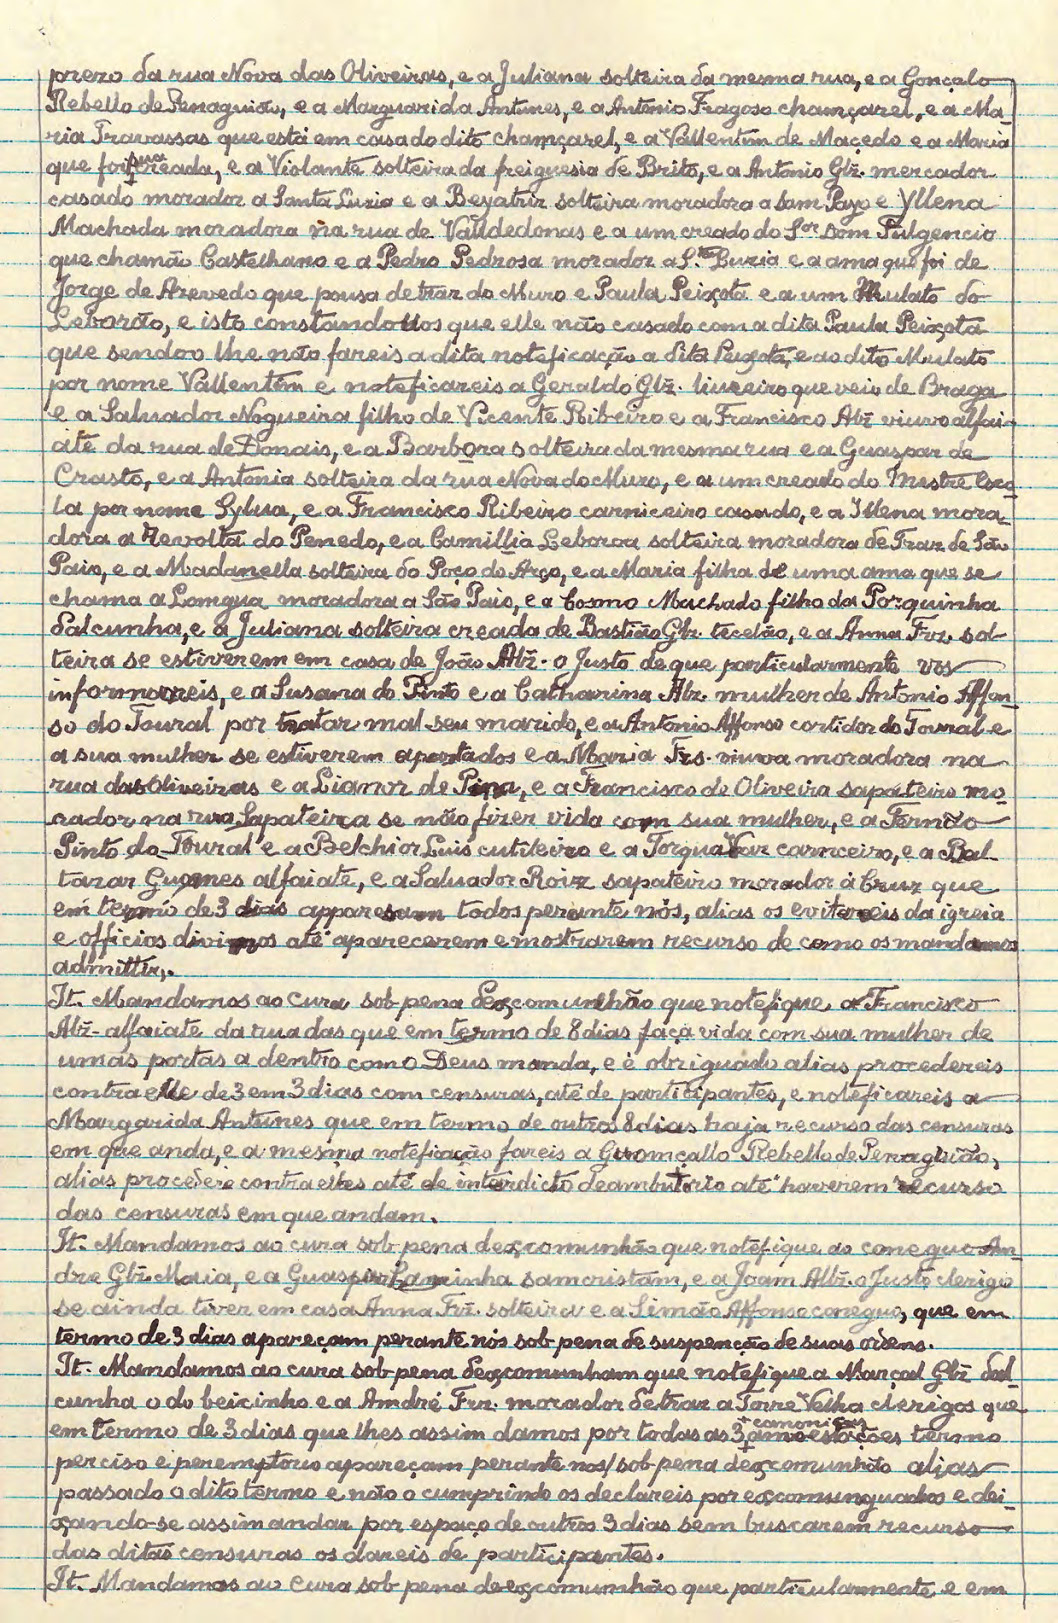 prezo da rua Nova das Oliveiras, e a Juliana solteira da mesma rua, e a Gonçalo
Rebello de Penaguião, e a Marguarida Antunes, e a Antonio Fragoso chamçarel, e a Ma-
ria Travassas que está em casa do dito chamçarel, e a Vallentim de Macedo e a Maria
que foi sua creada, e a Violante solteira da freiguesia de Brito, e a Antonio Glz. mercador
casado morador a Santa Luzia e a Beyatriz solteira moradora a Sam Payo e Yllena
Machada moradora na rua de Valldedonas e a um creado do Sor Dom Fulgencio
que chamão Castelhano e a Pedro Pedrosa morador a S.ta Luzia e a ama que foi de
Jorge de Azevedo que pousa detraz do Muro e Paula Peixota e a um Mulato do
Leborão, e isto constandouos que elle não casado com a dita Paula Peixota
que sendoo lhe não fareis a dita noteficação a dita Peixota, e ao dito Mulato
por nome Vallentim e noteficareis a Geraldo Glz. liureiro que veio de Braga
e a Saluador Nogueira filho de Vicente Ribeiro e a Francisco Alz viuuo alfai-
ate da rua de Donais, e a Barbora solteira da mesma rua e a Guaspar de
Crasto, e a Antonia solteira da rua Nova do Muro, e a um creado do Mestre Esco-
la por nome Sylua, e a Francisco Ribeiro carniceiro casado, e a Illena mora-
dora a Revolta do Penedo, e a Camillia Leboroa solteira moradora de Traz de São
Paio, e a Madanella solteira do Poço do Arço, e a Maria filha de uma ama que se
chama a Lomgua moradora a São Paio, e a Cosmo Machado filho da Porquinha
dalcunha, e a Juliana solteira creada de Bastião Glz. tecelão, e a Anna Frz. sol-
teira se estiverem em casa de João Alz. o Justo de que particularmente vos
informareis, e a Susana do Pinto e a Catharina Alz. mulher de Antonio Affon-
so do Toural por tratar mal seu marido, e a Antonio Affonso cortidor do Toural e
a sua mulher se estiverem apartados e a Maria Frs. viuva moradora na
rua das Oliveiras e a Lianor de Pina, e a Francisco de Oliveira sapateiro mo-
rador na rua Sapateira se não fizer vida com sua mulher, e a Fernão
Pinto do Toural e a Belchior Luis cutileiro e a Torqua Vaz carnceiro, e a Bal-
tazar Guomes alfaiate, e a Saluador Roiz sapateiro morador à Cruz que
em termo de 3 dias apparesam todos perante nós, alias os evitareis da igreia
e officios divinos até aparecerem e mostrarem recurso de como os mandamos
admittir.
It. Mandamos ao cura sob pena dexcomunhão que notefique a Francisco
Alz- alfaiate da rua das que em termo de 8 dias faça vida com sua mulher de
umas portas a dentro como Deus manda, e é obriguado alias procedereis
contra elle de 3 em 3 dias com censuras, até de participantes, e noteficareis a
Margarida Antunes que em termo de outros 8 dias haja recurso das censuras
em que anda, e a mesma noteficação fareis a Guomçallo Rebello de Penaguião,
alias procedereis contra elles até de interdicto deambutorio até haverem recurso
das censuras em que andam.
It. Mandamos ao cura sob pena dexcomunhão que notefique ao coneguo An-
dre Glz Maia, e a Guaspar Laminha samcristam, e a Joam Alz. o Justo clerigo
se ainda tiver em casa Anna Frz. solteira e a Simão Affonso coneguo, que em
termo de 3 dias apareçam perante nós sob pena de suspenção de suas ordens.
It. Mandamos ao cura sob pena dexcomunham que notefique a Marçal Glz dal-
cunha o do beicinho e a Amdré Frz. morador detraz a Torre Velha clerigos que
em termo de 3 dias que lhes assim damos por todas as 3 camonicas amoestações termo
perciso e peremptorio apareçam perante nos/ sob pena dexcomunhão alias
passado o dito termo e não o cumprindo os declareis por excomunguados e dei-
xando-se assim andar por espaço de outros 3 dias sem buscarem recurso
das ditas censuras os dareis de participantes.
It. Mandamos ao cura sob pena de excomunhão que particularmente e em